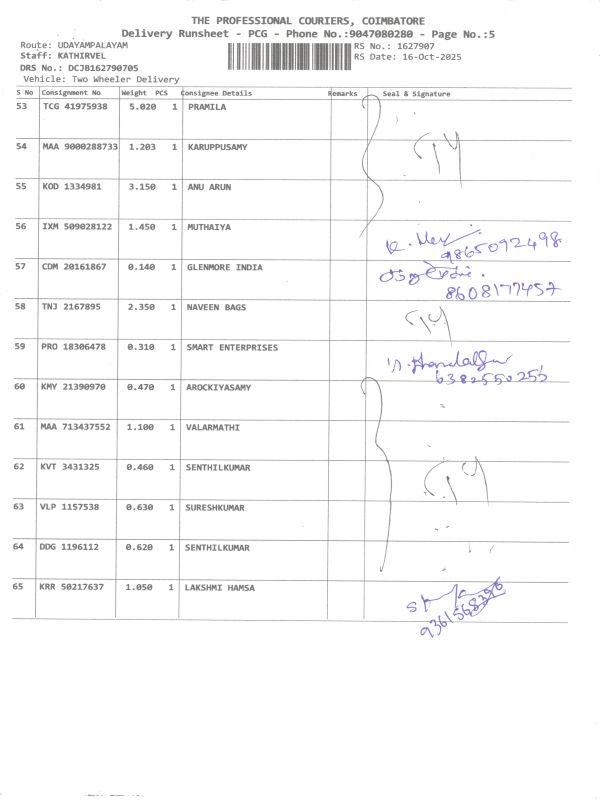 THE PROFESSIONAL COURIERS, COIMBATORE
Delivery Runsheet - PCG - Phone No.:9047080280 - Page No.:5
Route: UDAYAMPALAYAM RS No.: 1627907
Staff: KATHIRVEL RS Date: 16-Oct-2025
DRS No.: DCJB162790705
Vehicle: Two Wheeler Delivery
S No Consignment No Weight PCS Consignee Details Remarks Seal & Signature
53 TCG 41975938 5.020 1 PRAMILA
54 MAA 9000288733 1.203 1 KARUPPUSAMY
55 KOD 1334981 3.150 1 ANU ARUN
56 IXM 509028122 1.450 1 MUTHAIYA
9865092498
57 CDM 20161867 0.140 1 GLENMORE INDIA
8608177457
58 TNJ 2167895 2.350 1 NAVEEN BAGS
59 PRO 18306478 0.310 1 SMART ENTERPRISES
6382550255
60 KMY 21390970 0.470 1 AROCKIYASAMY
61 MAA 713437552 1.100 1 VALARMATHI
62 KVT 3431325 0.460 1 SENTHILKUMAR
63 VLP 1157538 0.630 1 SURESHKUMAR
64 DDG 1196112 0.620 1 SENTHILKUMAR
65 KRR 50217637 1.050 1 LAKSHMI HAMSA